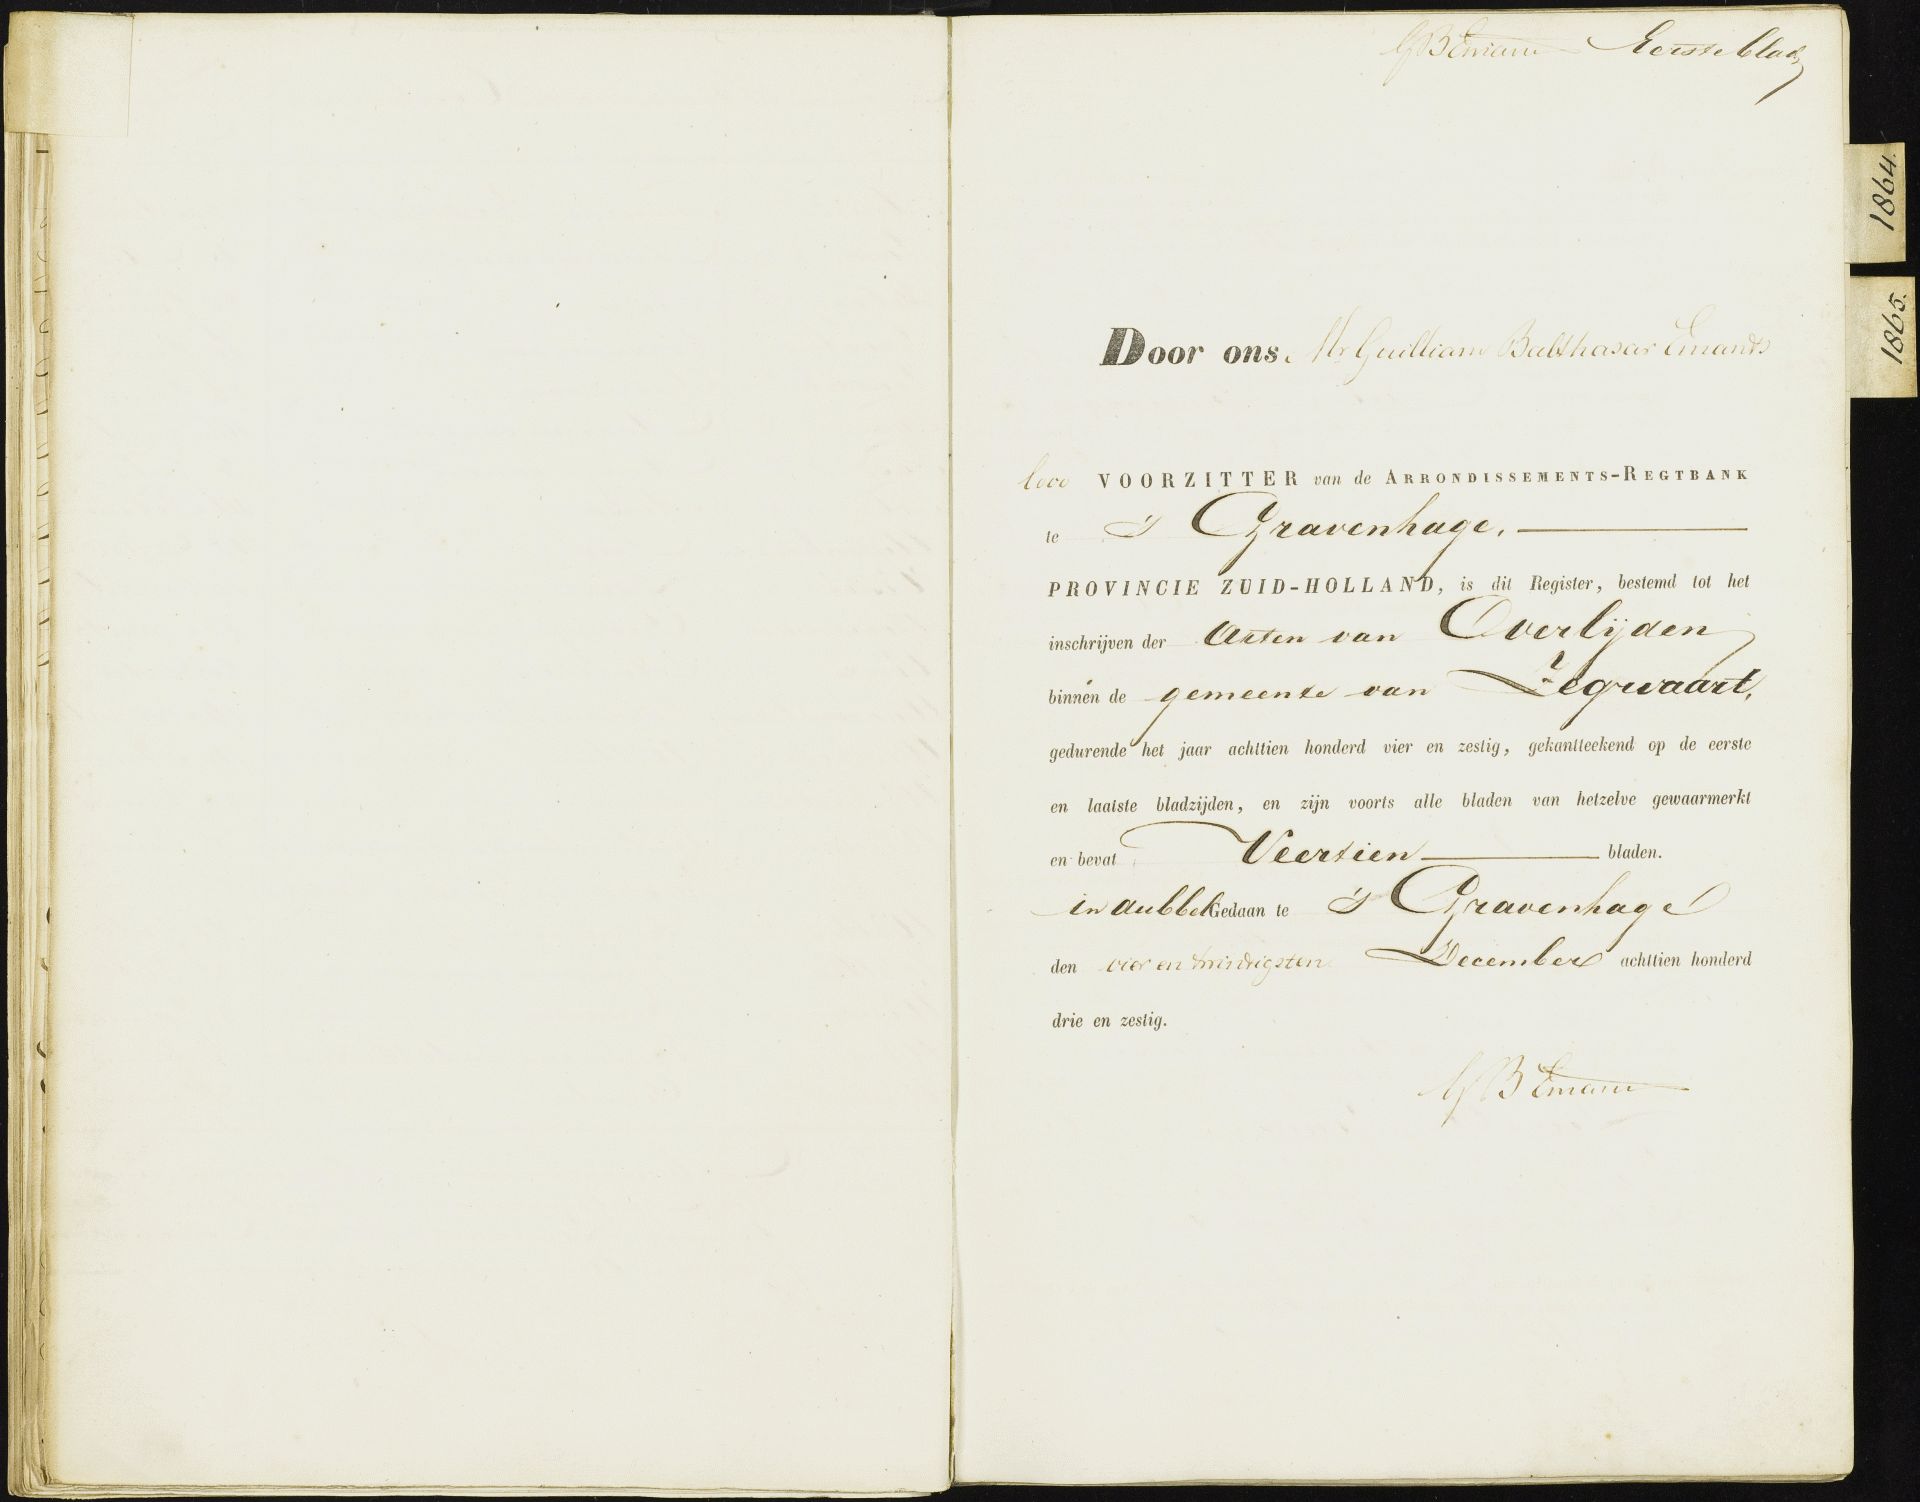 GBEmants Eerste blad
1864.
1865.
Door ons Mr Guilliam Balthasar Emants
loco VOORZITTER van de ARRONDISSEMENTS-REGTBANK
te 's Gravenhage.
PROVINCIE ZUID-HOLLAND, is dit Register, bestemd tot het
inschrijven der Akten van Overlijden
binnen de gemeente van Zegwaart,
gedurende het jaar achttien honderd vier en zestig, gekantteekend op de eerste
en laatste bladzijden, en zijn voorts alle bladen van hetzelve gewaarmerkt
en bevat Veertien bladen.
in dubbel Gedaan te 's Gravenhage
den vier en twintigsten December achttien honderd
drie en zestig.
GBEmants